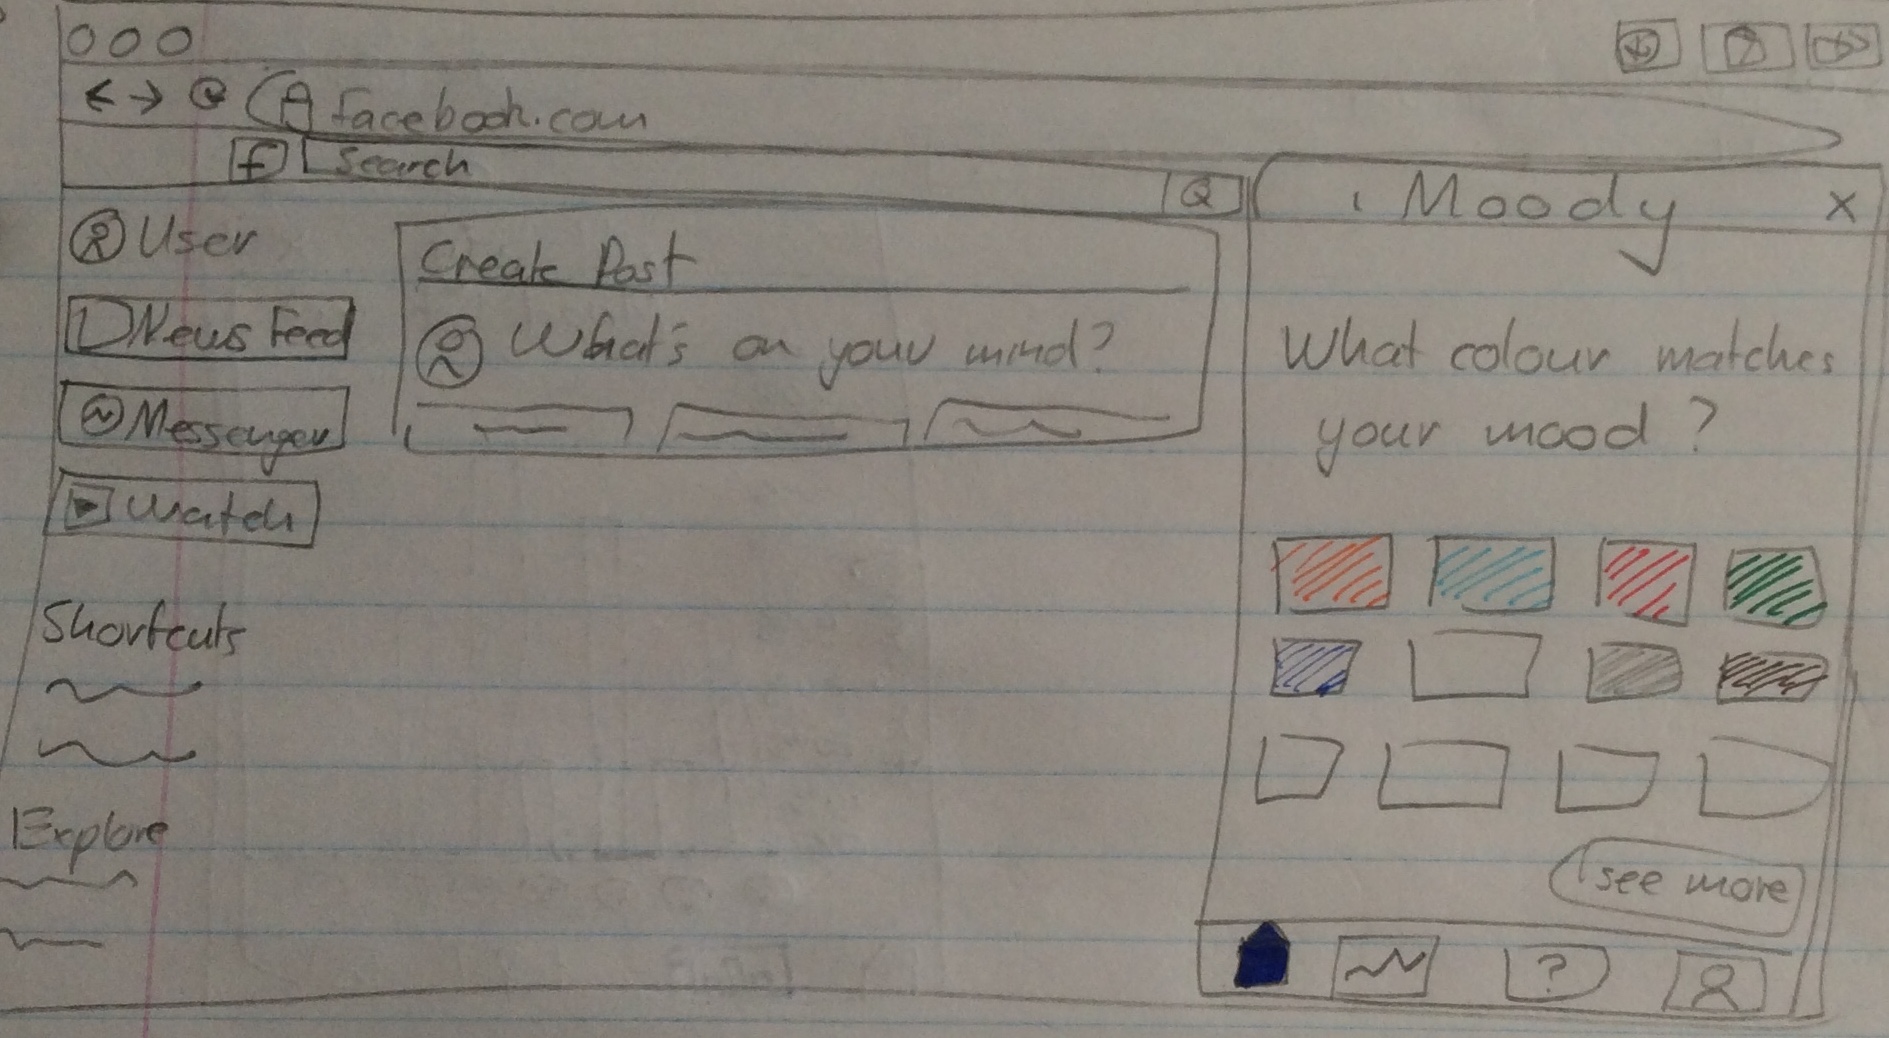 facebook.com
f Search
Moody x
User
News Feed
Messenger
Watch
Shortcuts
Explore
Create Post
What's on your mind?
What colour matches
your mood?
see more
?